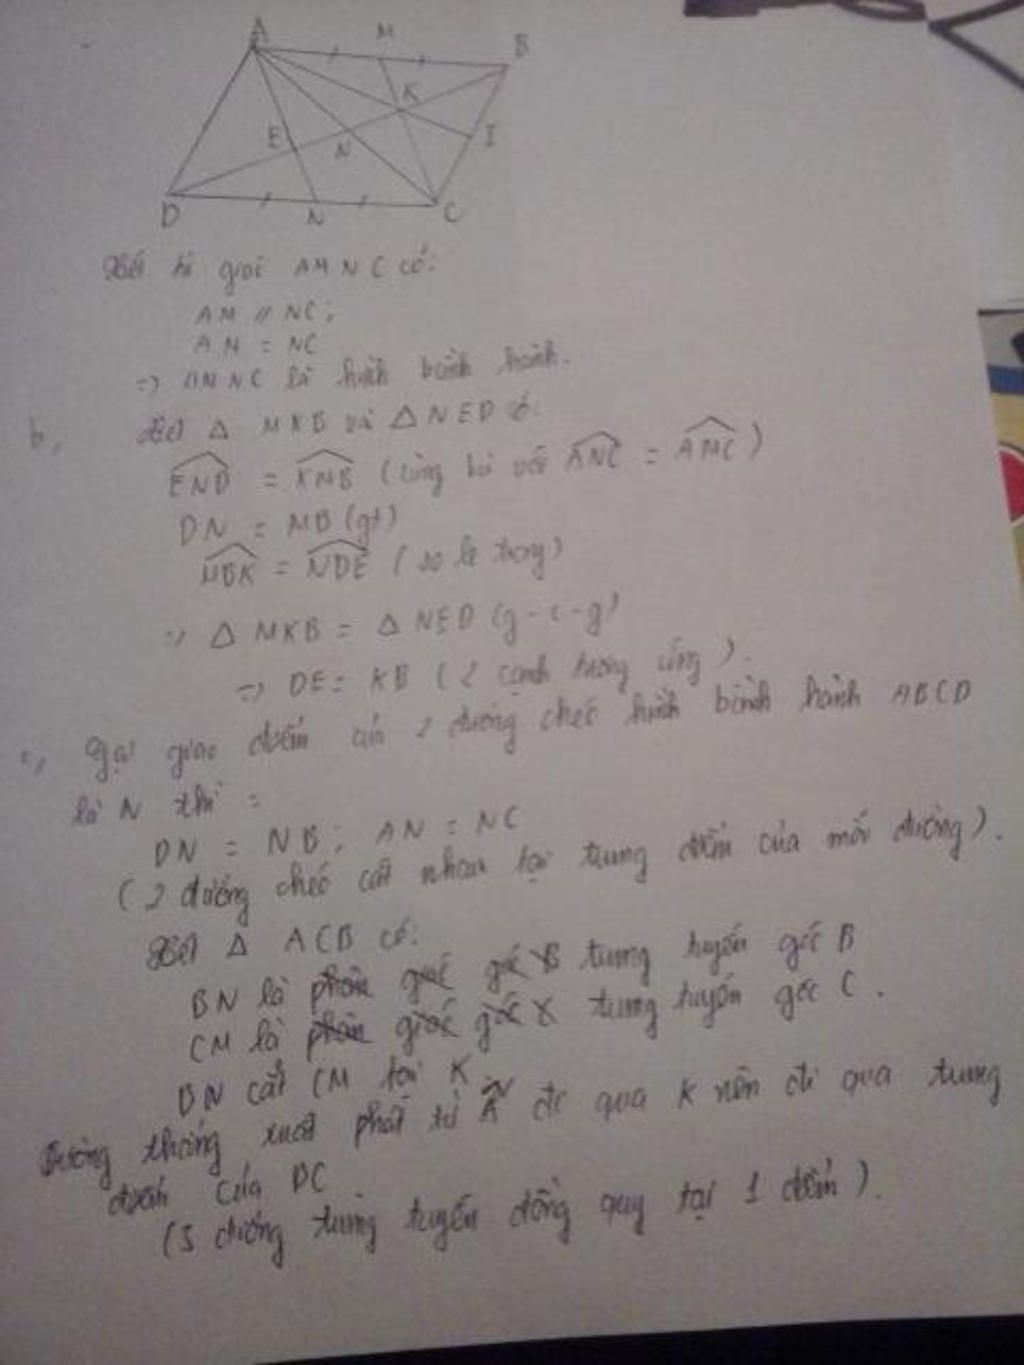 A M B
K
E N I
D N C
Xét tứ giác AMNC có:
AM // NC;
AM = NC
=> AMNC là hình bình hành.
b, Xét Δ MKB và Δ NED có:
END = KMB (cùng bù với ANC = AMC)
DN = MB (gt)
MBK = NDE (so le trong)
=> Δ MKB = Δ NED (g-c-g)
=> DE = KB (2 cạnh tương ứng).
c, Gọi giao điểm của 2 đường chéo hình bình hành ABCD
là N thì:
DN = NB; AN = NC
(2 đường chéo cắt nhau tại trung điểm của mỗi đường).
Xét Δ ACB có:
BN là phân giác góc B trung tuyến góc B
CM là phân giác góc trung tuyến góc C.
BN cắt CM tại K
Đường thẳng xuất phát từ A đi qua K nên đi qua trung
điểm của BC
(3 đường trung tuyến đồng quy tại 1 điểm).